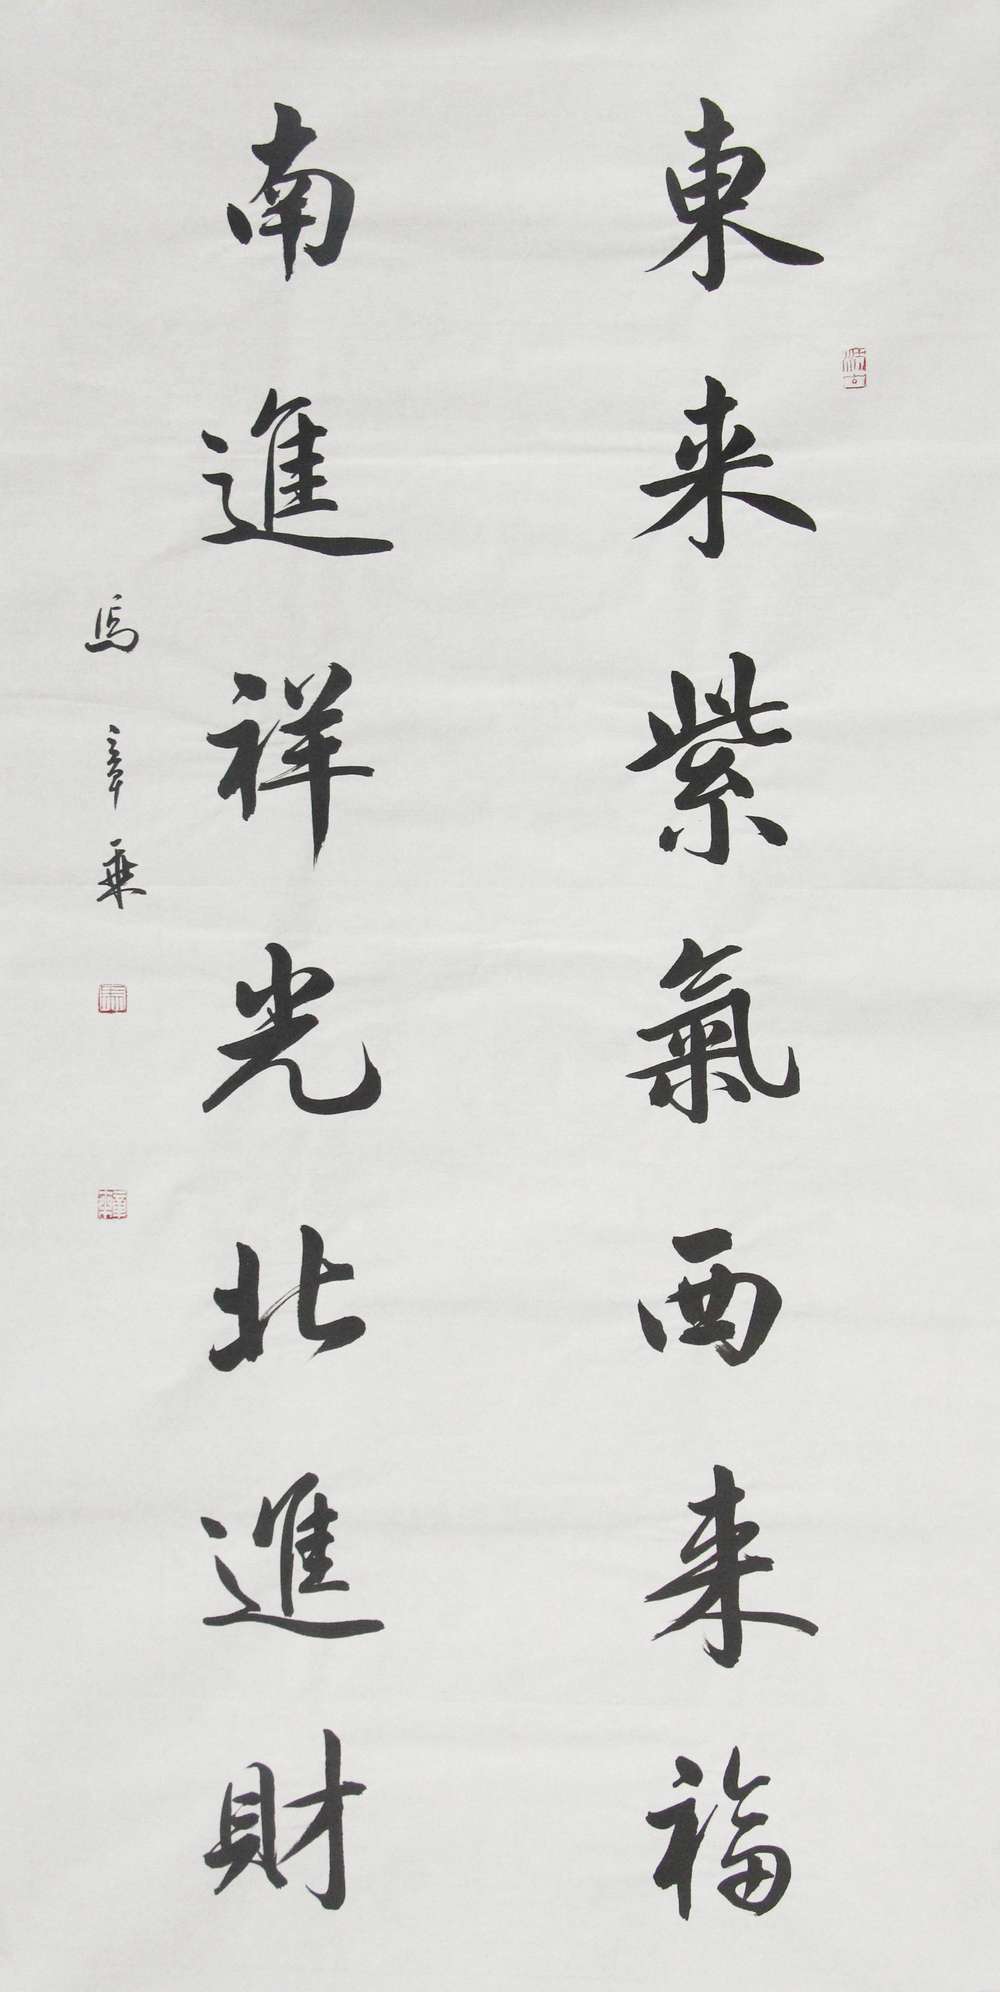 東来紫氣西来福
南進祥光北進財
馬章乘